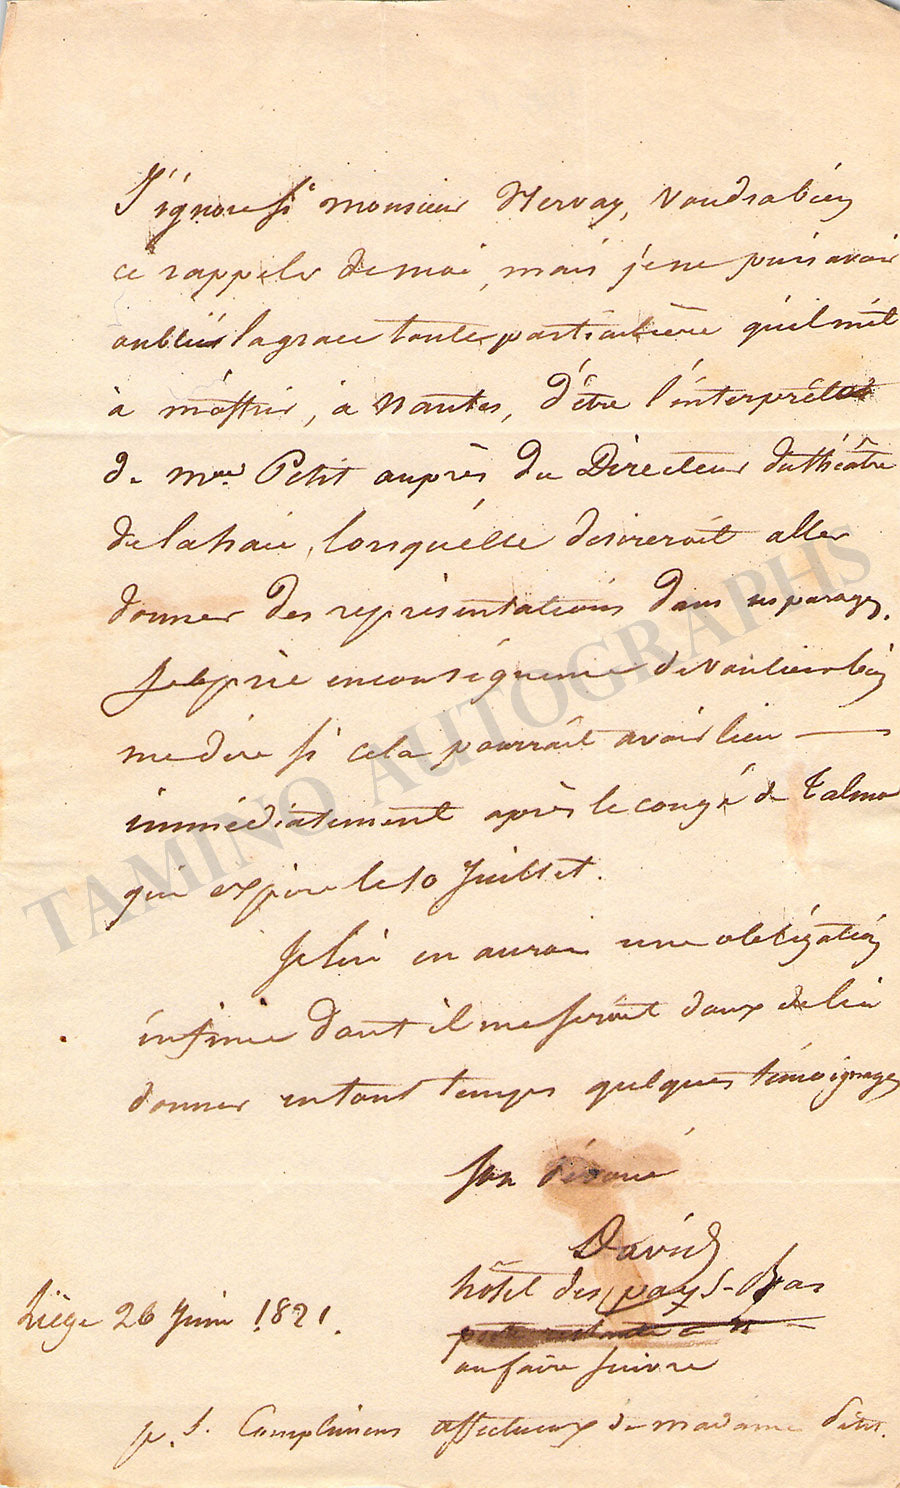 J'ignore si monsieur Hervay, voudra bien
ce rappeler de moi, mais je ne puis avoir
oublié la grace toute particulière qu'il mit
à m'offrir, à Nantes, d'être l'interprète
de Mme Petit auprès du Directeur du théâtre
de la haie, lorsqu'elle desireroit aller
donner des représentations dans ses parages.
Je le prie en conséquence de vouloir bien
me dire si cela pourrait avoir lieu —
immédiatement après le congé de Talma
qui expire le 10 Juillet.
Je lui en aurai une obligation
infinie dont il me seroit doux de lui
donner en tout temps quelques témoignages
Son dévoué
David
hôtel des pays-Bas
poste restante
ou faire suivre
Liège 26 Juin 1821.
p.s. Complimens affectueux de madame Petit.
TAMINO AUTOGRAPHS